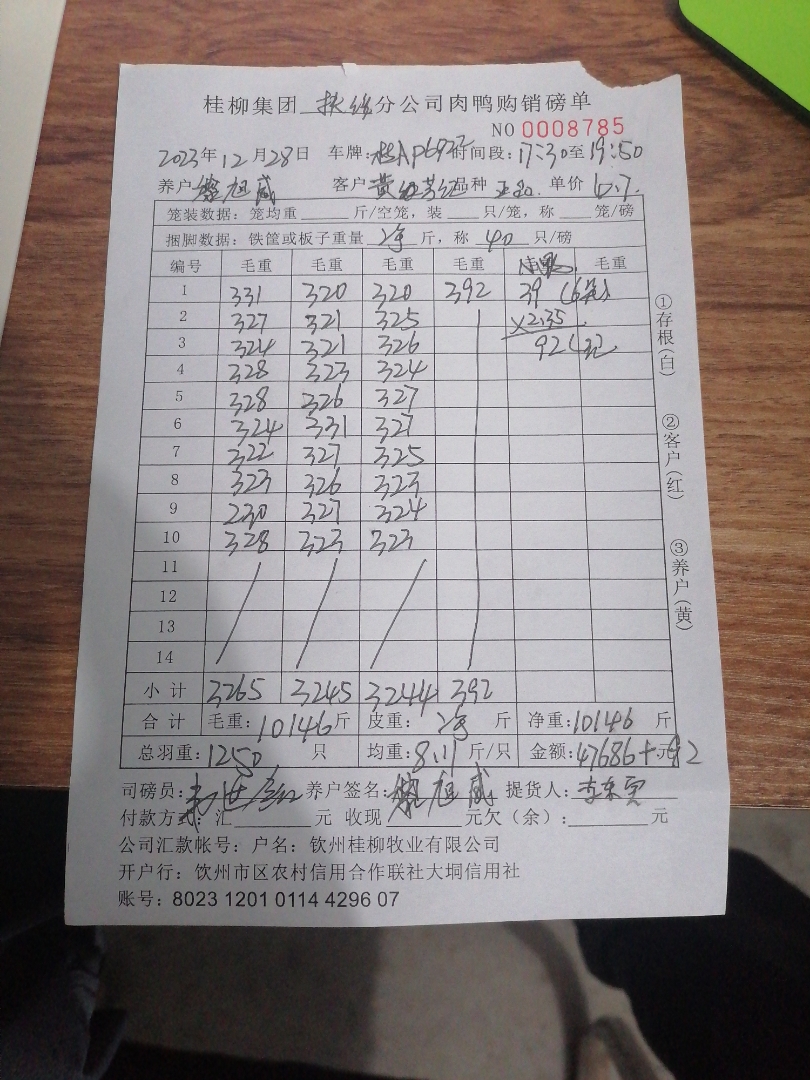 桂柳集团 扶绥 分公司肉鸭购销磅单
NO 0008785
2023年12月28日 车牌: 时间段:17:30至19:50
养户 旭威 客户 黄 品种 单价
笼装数据:笼均重 斤/空笼,装 只/笼,称 笼/磅
捆脚数据:铁筐或板子重量 净 斤,称 40 只/磅
编号 毛重 毛重 毛重 毛重 毛重
1 331 320 320 392 39
2 327 321 325 ×2.35
3 324 321 326 92元
4 328 323 324
5 328 326 327
6 324 331 327
7 322 327 325
8 323 326 323
9 230 327 324
10 328 323 323
11
12
13
14
小计 3265 3245 3244 392
合计 毛重:10146斤 皮重:净 斤 净重:10146 斤
总羽重:1250 只 均重:8.11斤/只 金额:47686+92元
司磅员: 养户签名: 旭威 提货人:李东
付款方式:汇 元 收现 元欠(余): 元
公司汇款帐号:户名:钦州桂柳牧业有限公司
开户行:钦州市区农村信用合作联社大垌信用社
账号:8023 1201 0114 4296 07
①存根(白)
②客户(红)
③养户(黄)